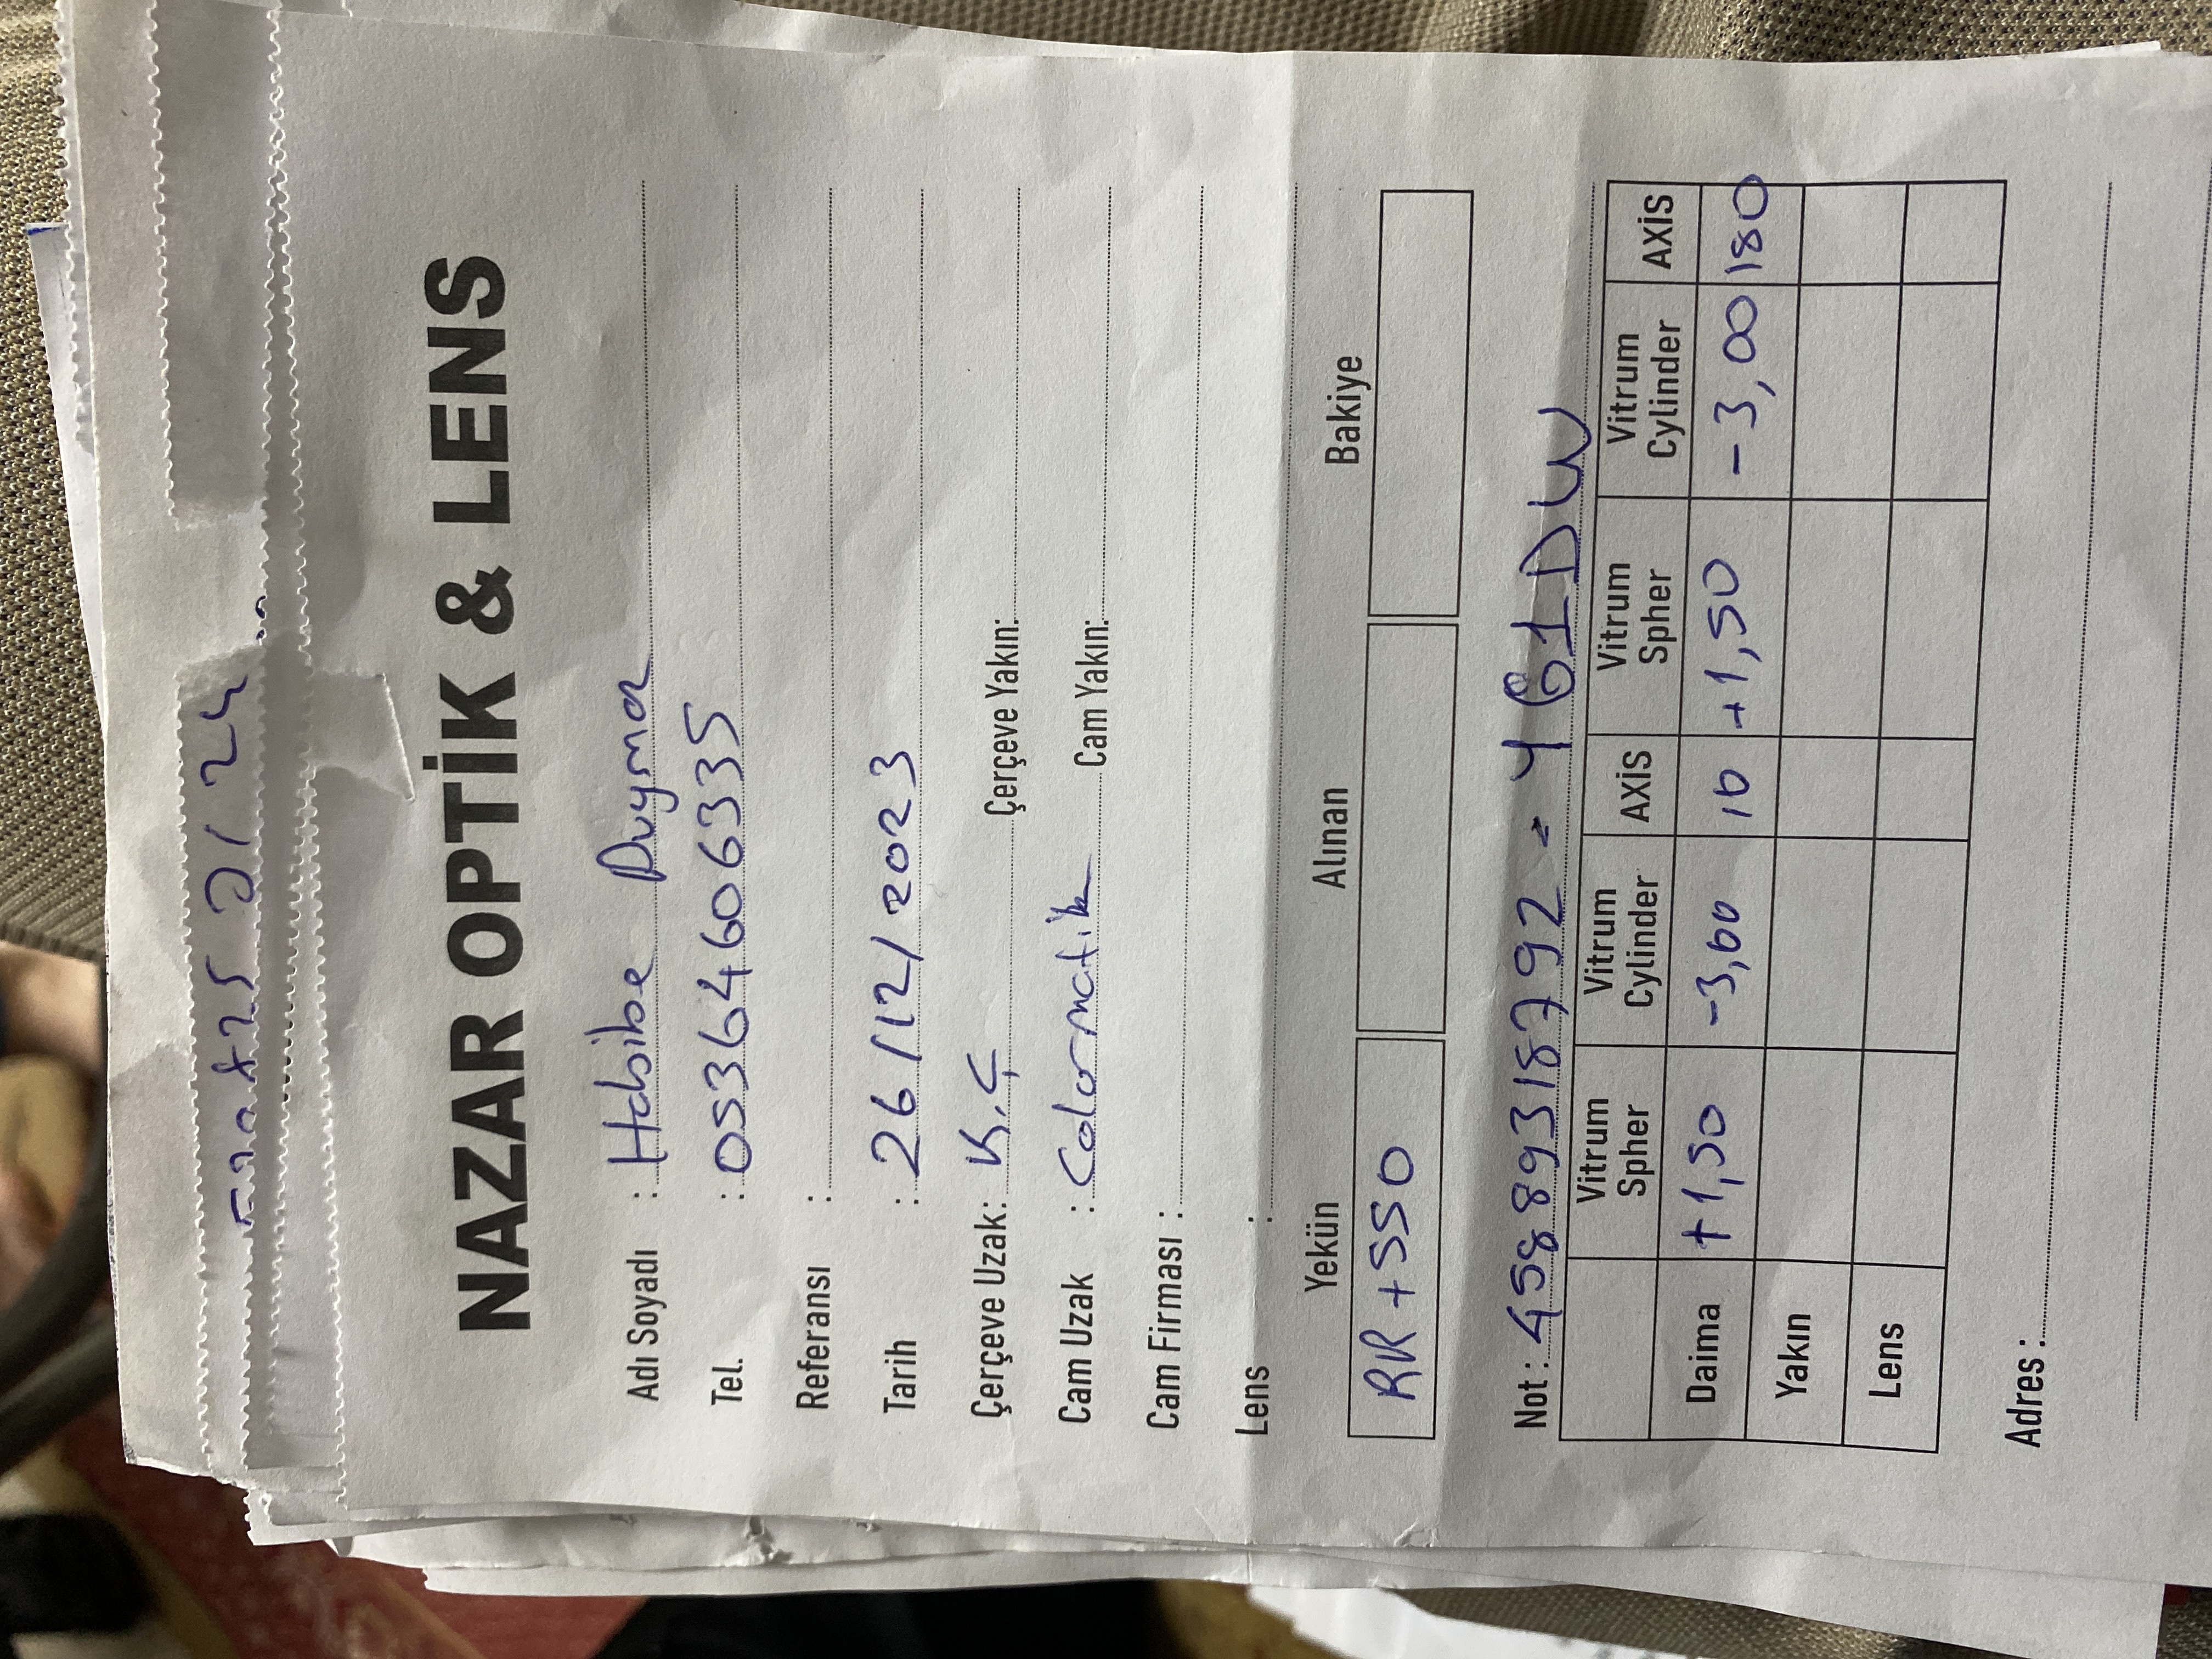 0124
NAZAR OPTİK & LENS
Adı Soyadı : Habibe Duymaz
Tel. : 05364606335
Referansı :
Tarih : 26/12/2023
Çerçeve Uzak: K.Ç Çerçeve Yakın:
Cam Uzak : Colormatik Cam Yakın:
Cam Firması :
Lens :
Yekün Alınan Bakiye
RR + 550
Not : 45889318792 - Y61DW
Vitrum Spher Vitrum Cylinder AXİS Vitrum Spher Vitrum Cylinder AXİS
Daima +1,50 -3,00 10 +1,50 -3,00 180
Yakın
Lens
Adres :